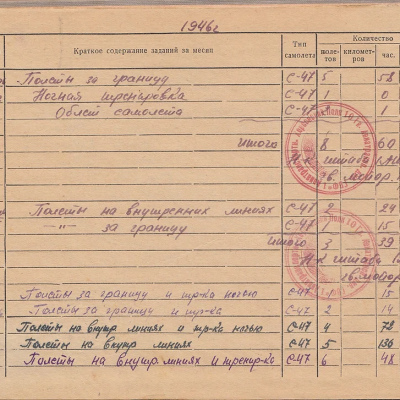 1946г
Краткое содержание заданий за месяц
Тип самолета
Количество
полетов
километров
час.
Полеты за границу С-47 5 58
Ночная тренировка С-47 1 0
Облет самолета С-47 1
Итого 8 60
Н-к штаба
гв. майор
Полеты на внутренних линиях С-47 2 24
-"- за границу С-47 1 15
Итого 3 39
Н-к штаба
гв. майор
Полеты за границу и тр-ка ночью С-47 15
Полеты за границу и тр-ка С-47 2 14
Полеты на внутр линиях и тр-ка ночью С-47 4 72
Полеты на внутр линиях С-47 5 130
Полеты на внутр. линиях и тренир-ка С-47 6 48